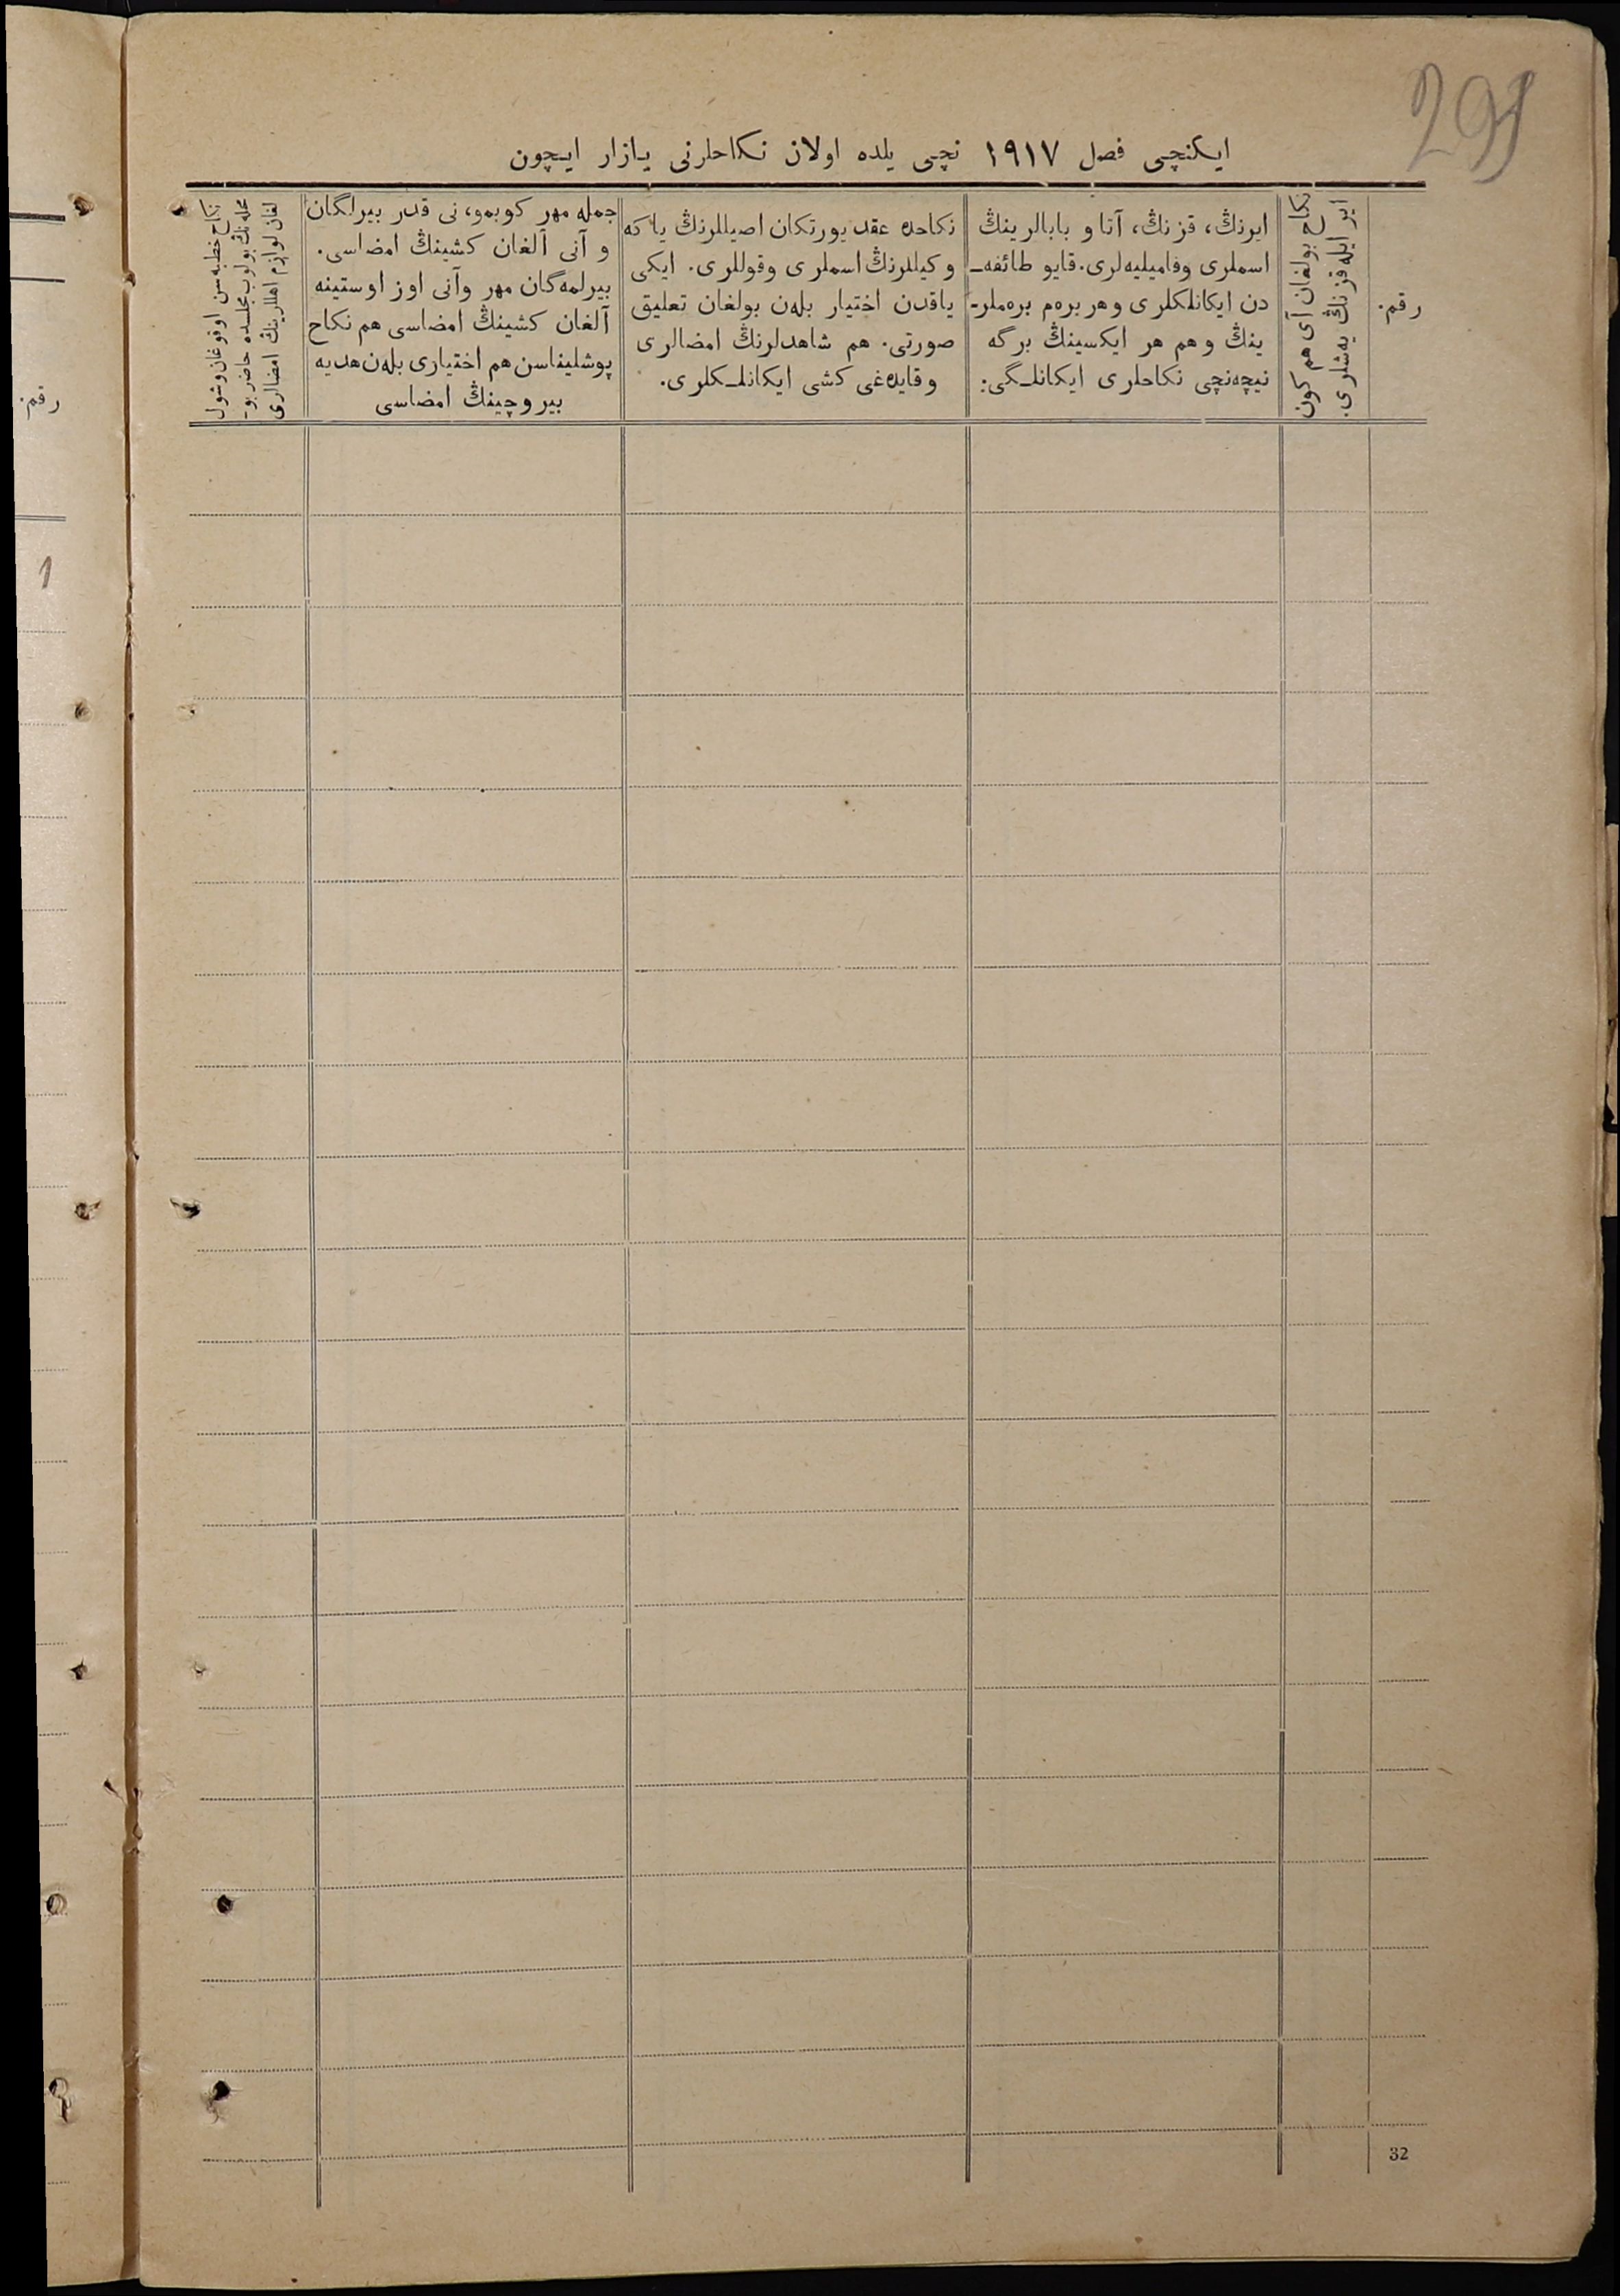 ایکنچی فصل ۱۹۱۷ نچی یلده اولان نکاحلرنی یازار ایچون
رقم.
نکاح بولغان آی هم کون
ایر ایله قزنڭ یه‌شلری.
ایرنڭ، قزنڭ، آتا و بابالرینڭ
اسملری وفامیلیه‌لری. قایو طائفه‌ـ
دن ایکانلکلری وهر بره‌م بره‌ملرـ
ینڭ وهم هر ایکسینڭ برگه
نیچه‌نچی نکاحلری ایکانلـگی:
نکاحده عقد یورتکان اصیللرنڭ یا که
وکیللرنڭ اسملری وقوللری. ایکی
یاقدن اختیار بله‌ن بولغان تعلیق
صورتی. هم شاهدلرنڭ امضالری
وقایده‌غی کشی ایکانلـکلری.
جمله مهر کوبمو، نی قدر بیرلگان
و آنی آلغان کشینڭ امضاسی.
بیرلمه‌گان مهر وآنی اوز اوستینه
آلغان کشینڭ امضاسی هم نکاح
پوشلیناسن هم اختیاری بله‌ن هدیه
بیروچینڭ امضاسی
نکاح خطبه‌سن اوقوغان وشول
محله‌نڭ بولوب مجلسده حاضر بوـ
لغان لوازم اهللرینڭ امضالری
32
رقم.
1